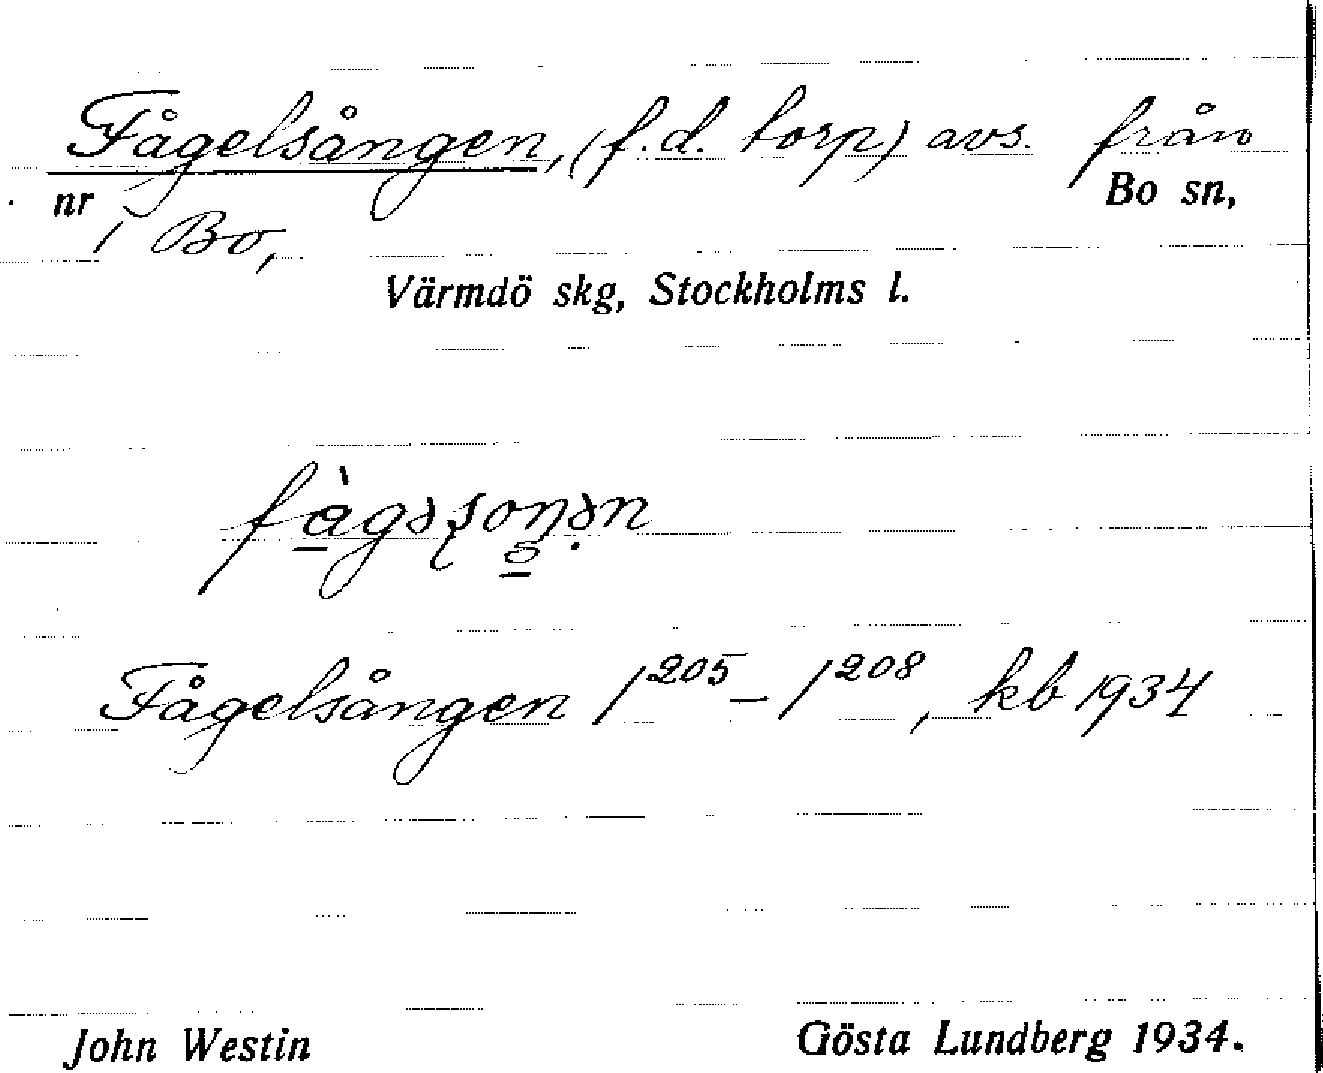 Fågelsången, (f.d. torp) avs. från
nr i Bo, Bo sn,
Värmdö skg, Stockholms l.
Fågelsången 1²⁰⁵–1²⁰⁸, kb 1934
John Westin Gösta Lundberg 1934.